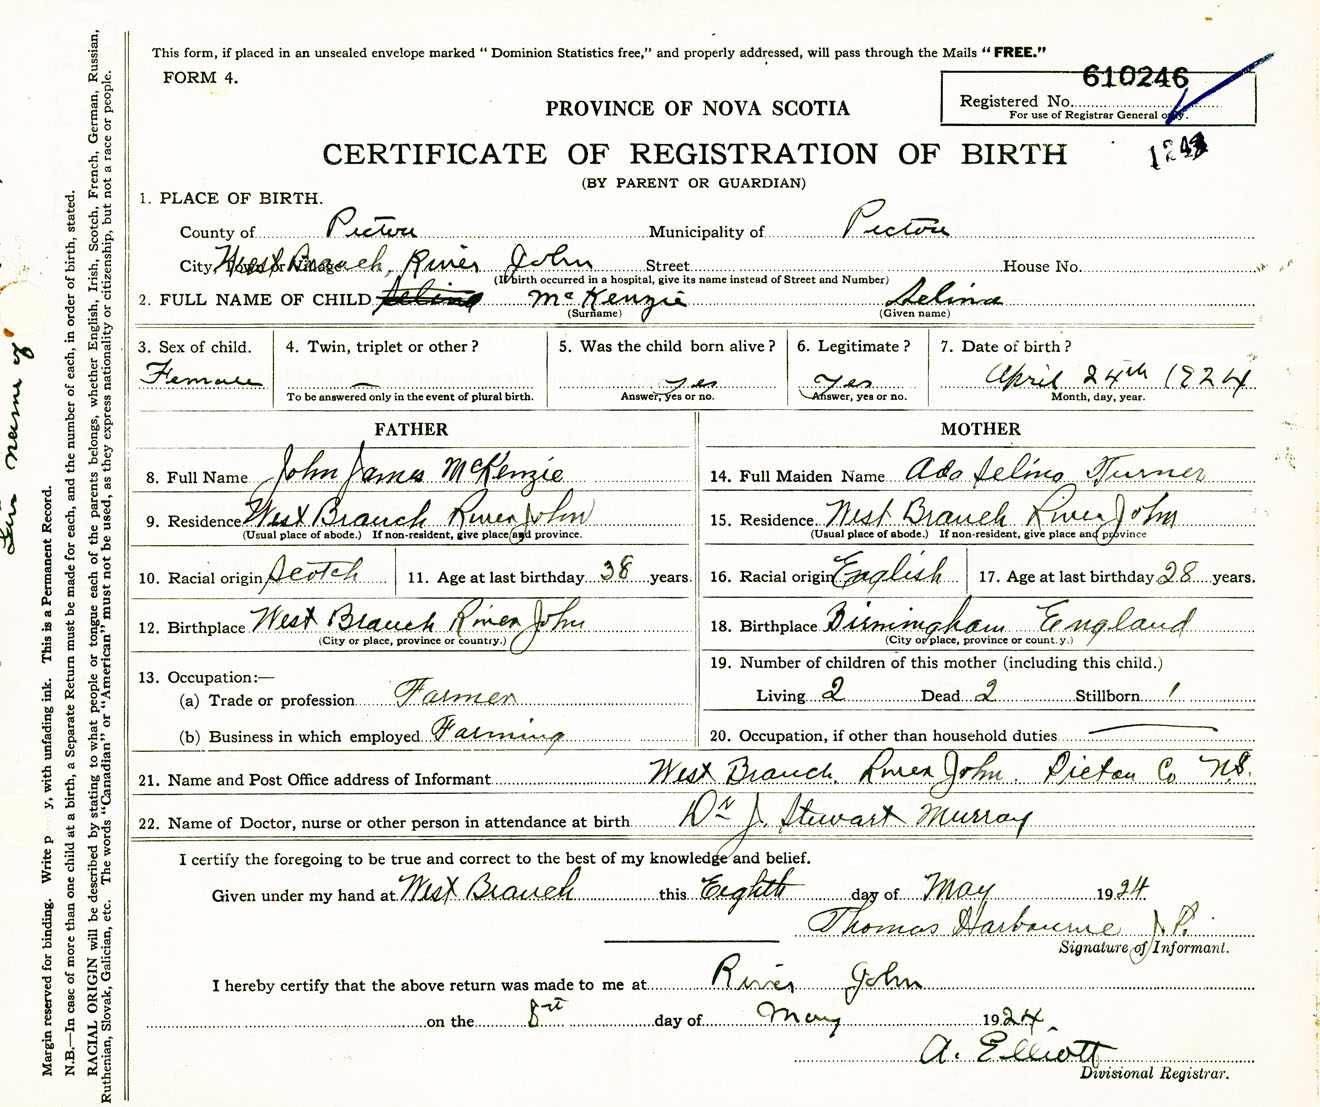 This form, if placed in an unsealed envelope marked “ Dominion Statistics free,” and properly addressed, will pass through the Mails “ FREE.”
FORM 4.
610246
Registered No.
For use of Registrar General only.
PROVINCE OF NOVA SCOTIA
CERTIFICATE OF REGISTRATION OF BIRTH
(BY PARENT OR GUARDIAN)
1. PLACE OF BIRTH.
County of Pictou Municipality of Pictou
City, Town or Village West Branch, River John Street House No.
(If birth occurred in a hospital, give its name instead of Street and Number)
2. FULL NAME OF CHILD Selina McKenzie Selina
(Surname) (Given name)
3. Sex of child. 4. Twin, triplet or other ? 5. Was the child born alive ? 6. Legitimate ? 7. Date of birth ?
Female — Yes Yes April 24th 1924
To be answered only in the event of plural birth. Answer, yes or no. Answer, yes or no. Month, day, year.
FATHER MOTHER
8. Full Name John James McKenzie 14. Full Maiden Name Ada Selina Turner
9. Residence West Branch River John 15. Residence West Branch River John
(Usual place of abode.) If non-resident, give place and province. (Usual place of abode.) If non-resident, give place and province
10. Racial origin Scotch 11. Age at last birthday 38 years. 16. Racial origin English 17. Age at last birthday 28 years.
12. Birthplace West Branch River John 18. Birthplace Birmingham England
(City or place, province or country.) (City or place, province or count.y.)
13. Occupation:— 19. Number of children of this mother (including this child.)
(a) Trade or profession Farmer Living 2 Dead 2 Stillborn 1
(b) Business in which employed Farming 20. Occupation, if other than household duties —
21. Name and Post Office address of Informant West Branch River John. Pictou Co N.S.
22. Name of Doctor, nurse or other person in attendance at birth Dr J. Stewart Murray
I certify the foregoing to be true and correct to the best of my knowledge and belief.
Given under my hand at West Branch this Eighth day of May 1924
Thomas Harbourne J.P.
Signature of Informant.
I hereby certify that the above return was made to me at River John
on the 8st day of May 1924
A. Elliott
Divisional Registrar.
Margin reserved for binding. Write p y, with unfading ink. This is a Permanent Record.
N.B.—In case of more than one child at a birth, a Separate Return must be made for each, and the number of each, in order of birth, stated.
RACIAL ORIGIN will be described by stating to what people or tongue each of the parents belongs, whether English, Irish, Scotch, French, German, Russian,
Ruthenian, Slovak, Galician, etc. The words “Canadian” or “American” must not be used, as they express nationality or citizenship, but not a race or people.
name of